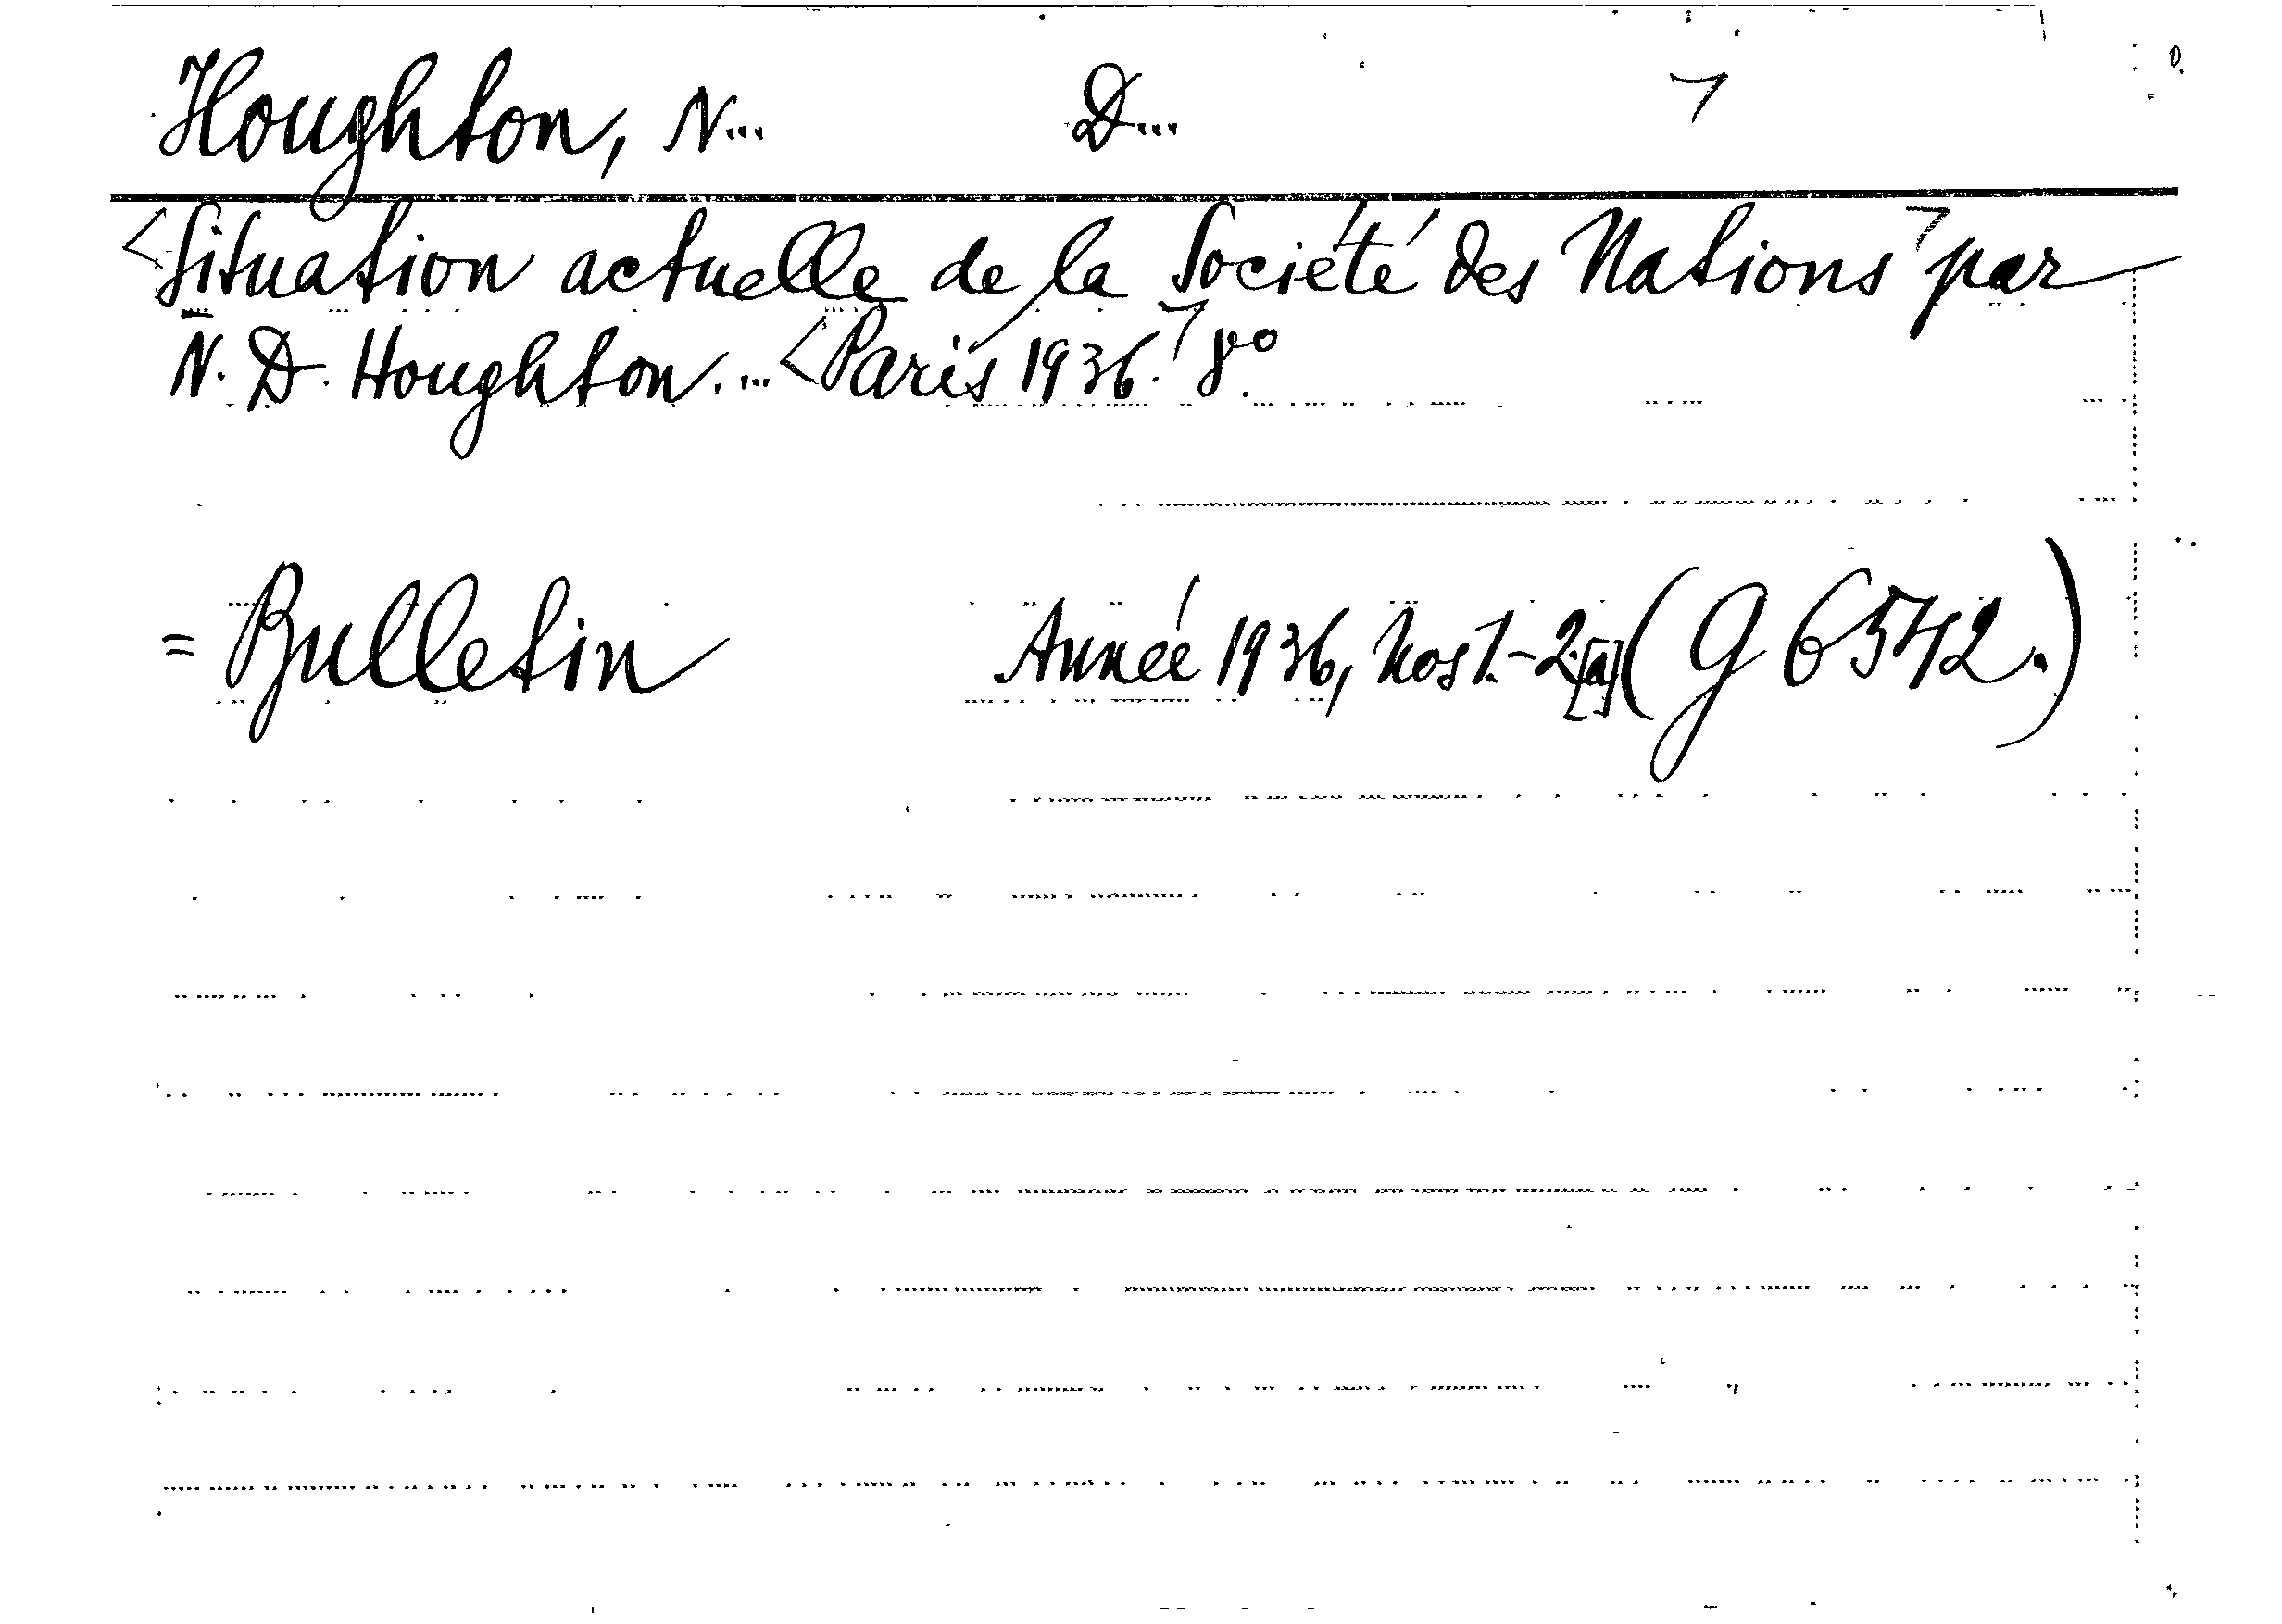 Houghton, N... D... ㄱ
<Situation actuelle de la Société des Nations> par
N. D. Houghton. ... <Paris 1936.> 8°.
= Bulletin Année 1936, Nos 1.-2.[a] (G 6542.)